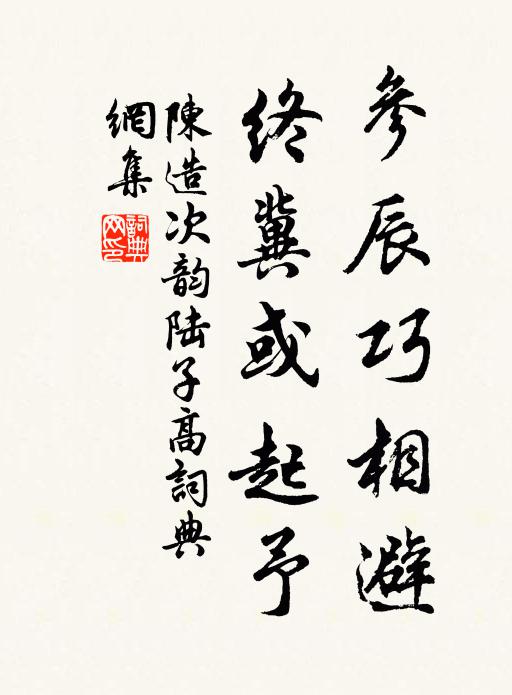 參辰巧相避
終冀或起予
陳造次韵陆子高詞典
網集
詞典網印